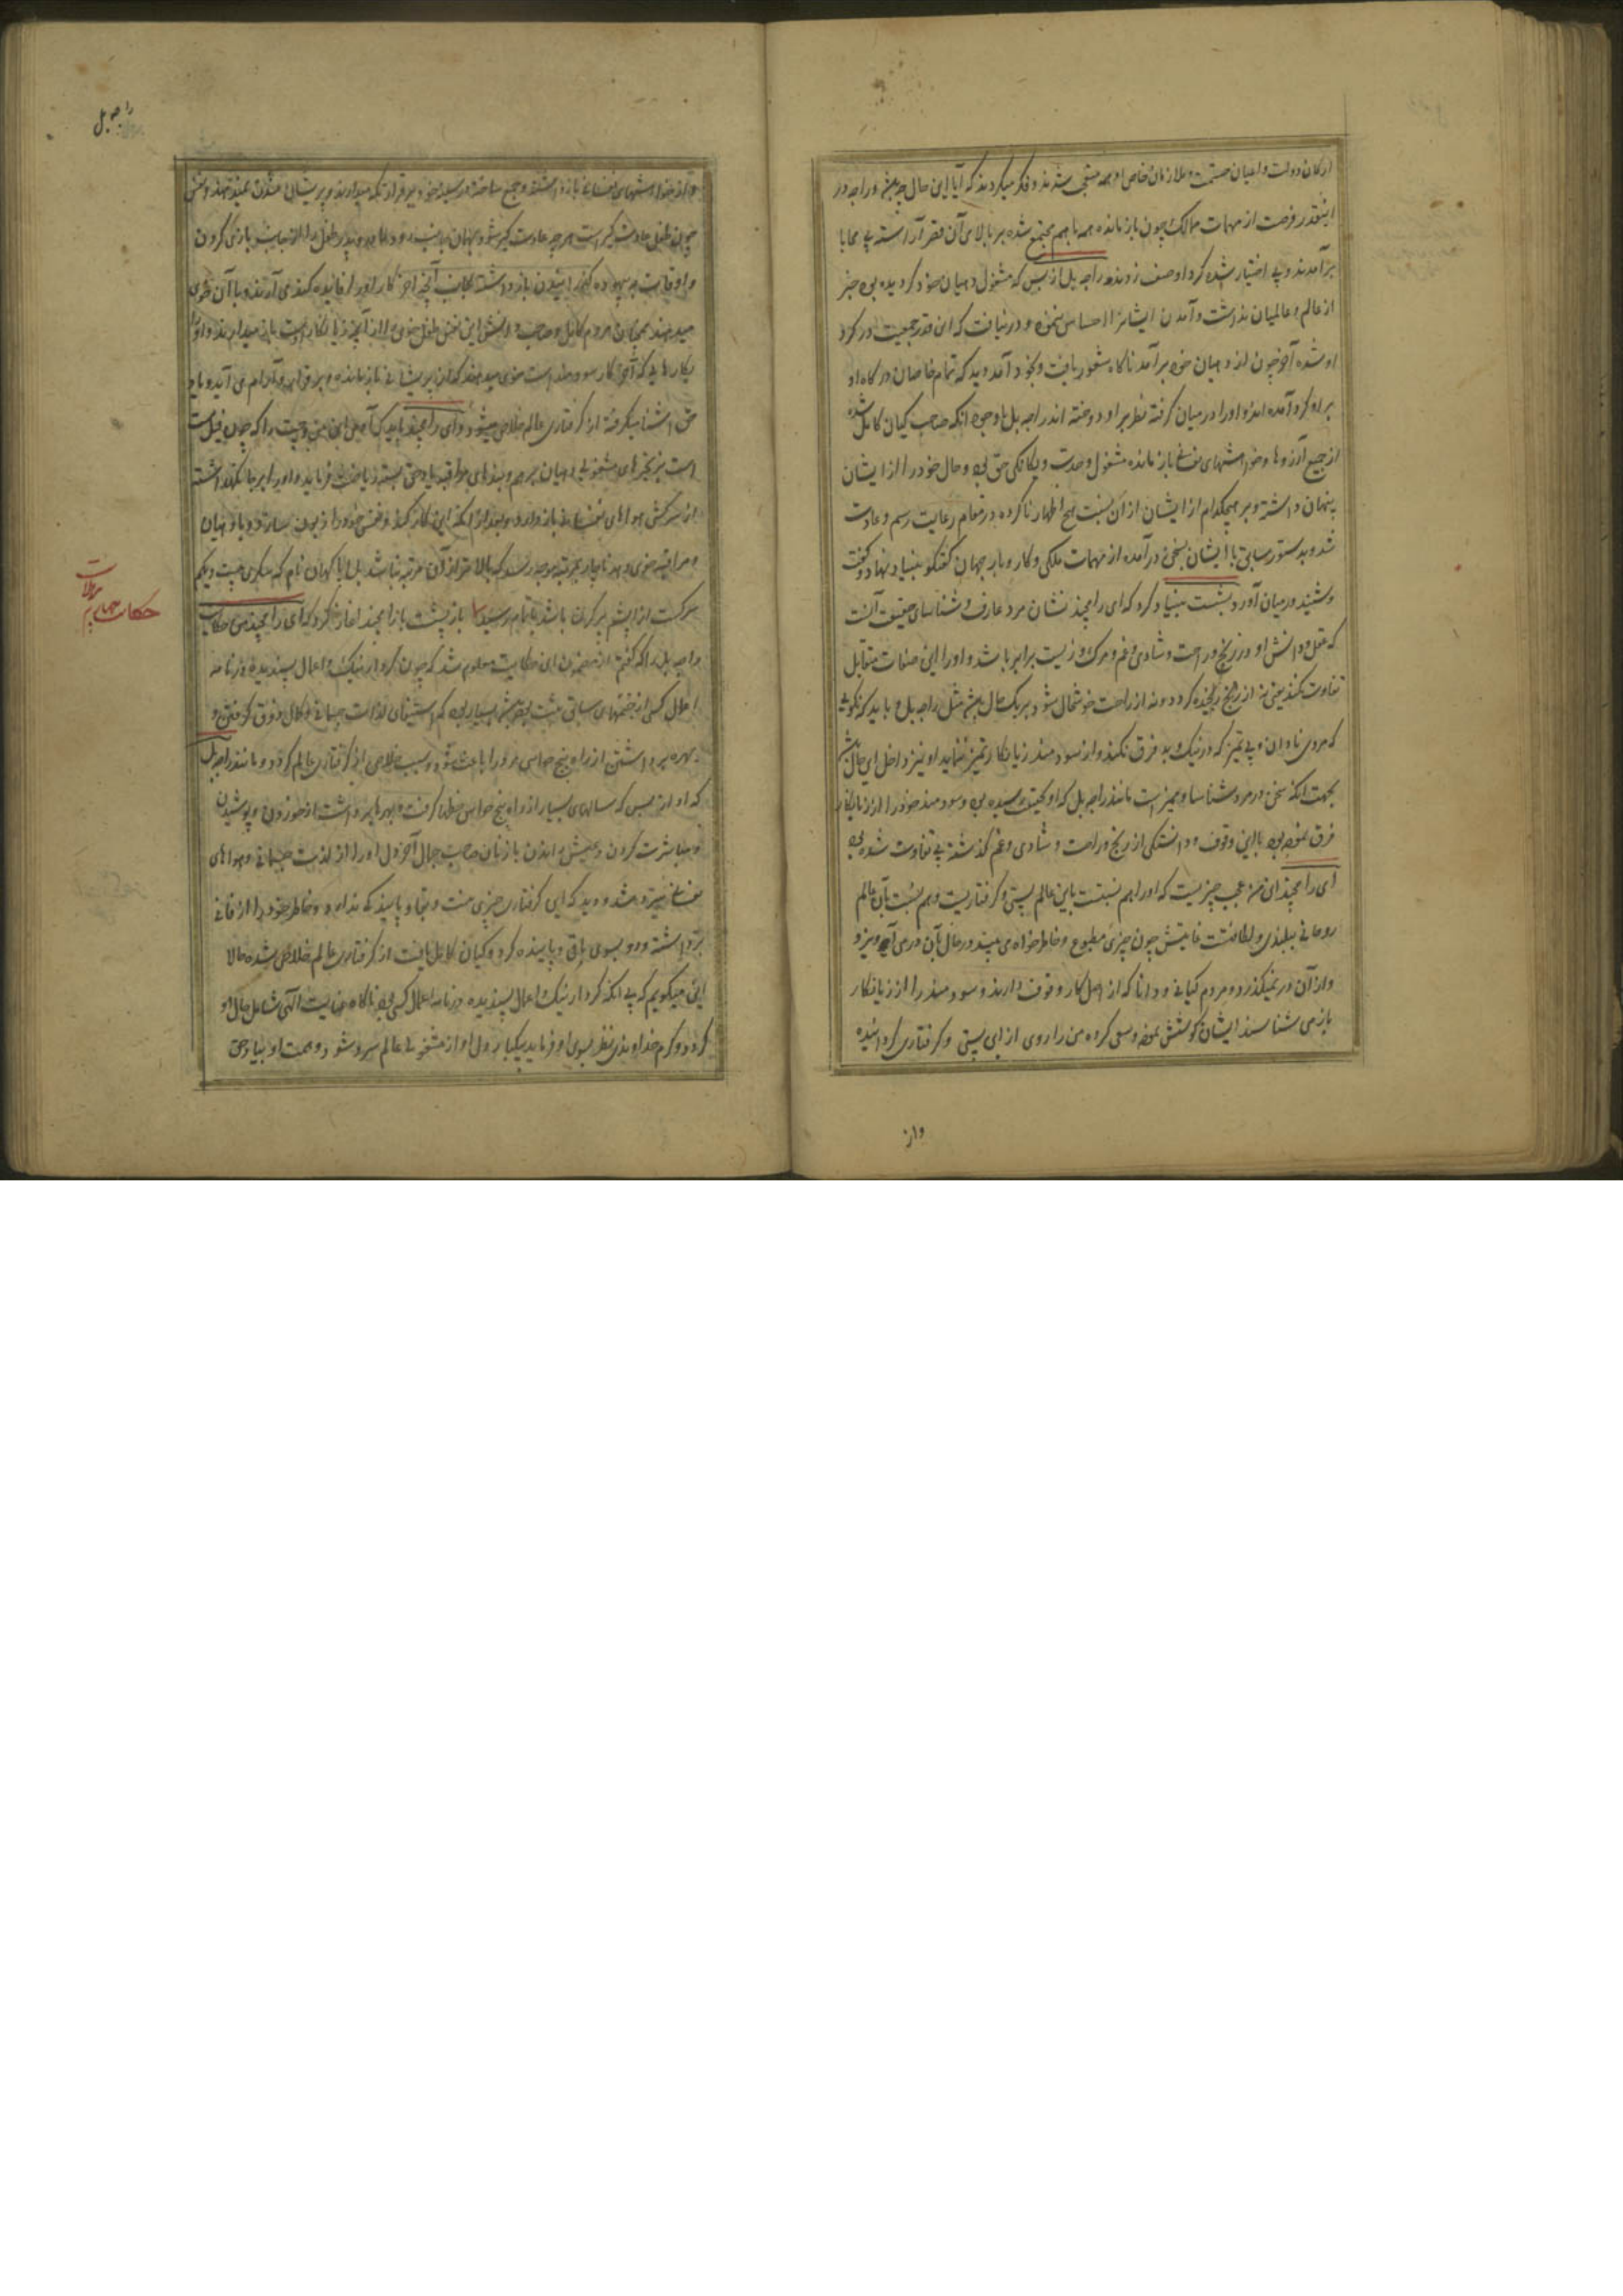 ارکان دولت و اعیان حشمت و ملازمان خاص او همه متعجب شدند و فکر میکردند که آیا این حال چه باشد و راجه در
اینقدر فرصت از مهمات ممالک چون باز مانده همه باهم مجتمع شده بر بالای آن قصر آراسته بی محابا
برآمدند و بی اختیار شده گرد او صف زدند راجه بل از بس که مشغول دهیان خود گردیده بود خبر
از عالم و عالمیان نداشت و آمدن ایشانرا احساس ننمود و درنیافت که این قدر جمعیت در گرد
او شده آخر چون از دهیان خود برآمد ناگاه شعور یافت و بخود آمد دید که تمام خاصان درگاه او
بر او گرد آمده اند و او را در میان گرفته نظر بر او دوخته اند راجه بل با وجود آنکه صاحب گیان کامل شده
از جمیع آرزوها و خواهشهای نفسانی باز مانده مشغول وحدت و یگانگی حق بود حال خود را از ایشان
پنهان داشته و بر هیچکدام از ایشان از آن نسبت هیچ اظهار ناکرده در مقام رعایت رسم و عادت
شد و بدستور سابق با ایشان بسخن درآمده از مهمات ملکی و کار و بار جهان گفتگو بنیاد نهاد و گفت
و شنید در میان آورد بسشت بنیاد کرد که ای رامچند نشان مرد عارف و شناسای حقیقت آنست
که عقل و دانش او در رنج و راحت و شادی و غم و مرگ و زیست برابر باشد و او را این صفات متقابل
تفاوت نکند یعنی نه از رنج رنجیده گردد و نه از راحت خوشحال شود بر یک حال باشد مثل راجه بل و باید که نگوئی
که مردی نادان و بی تمیز که در نیک و بد فرق نکند و از سودمند زیانکار تمیز ننماید او نیز داخل این حال باشد
بجهت آنکه سخن در مرد شناسا و ممیز است مانند راجه بل که او بحقیقت رسیده بود و سودمند خود را از زیانکار
فرق نموده بود با این وقوف و دانستگی از رنج و راحت و شادی و غم گذشته بی تفاوت شده بود
ای رامچند این من عجب چیزیست که او را هم نسبتست باین عالم پستی و گرفتاریست و هم نسبت بآن عالم
روحانی ببلندی و لطافتست غایتش چون چیزی مطبوع و خاطرخواه می بیند در حال بآن در می آویزد و
و از آن در نمیگذرد و مردم گیانی و دانا که از اصل کار وقوف دارند و سودمند را از زیانکار
باز می شناسند ایشان کوشش نموده و سعی کرده من را روی از این پستی و گرفتاری گردانیده
واز
راجه بل
و از خواهشهای نفسانی باز داشته و جمع ساخته
چون طفل عادت گیر است هر چه عادت گیر شود بهمان
و اوقات به بیهوده گذرانیدن باز داشته بجانب آنچه آخر کار او را فائده کند می آرند و با آن خوی
میدهند همچنان مردم کامل و صاحب دانش این نفس طفل خوی را از آنچه زیانکار است باز میدارند و او را
بکارهایی که آخر کار سودمند است خوی میدهند که از پریشانی باز مانده و بر قرار و آرام می آید و با
حق آشنا میگرفته از گرفتاری عالم خلاص میشود و ای رامچند باید که آدمی این من و چت را که چون فیل مست
است بزنجیرهای مشغولی دهیان برهم و بندهای مراقبه یاد حق بسته ریاضت فرماید و او را بر جا نگهداشته
از سرکش هواهای نفسانی باز دارد و بعد از آنکه این کار کند و نفس خود را زبون سازد و با دهیان
و مراقبه خوی دهد ناچار بمرتبه موجد رسد که بالاتر از آن مرتبه نباشد
بسشت باز رامچند آغاز کرد که ای رامچند من حکایت
راجه بل را که گفتم از مضمون این حکایت معلوم شد که چون کردار نیک و اعمال پسندیده در نامه
اعمال کسی از جنمهای سابق ثبت بوده باشد بسیار بود که استیفای لذات جسمانی و کمال ذوق گرفتن و
بهره برداشتن از راه پنج حواس مر او را باعث شود و سبب خلاص از گرفتاری عالم گردد و مانند راجه بل
که او از بس که سالهای بسیار از راه پنج حواس حظها گرفت و بهرها برداشت از خوردن و پوشیدن
و مباشرت کردن و عیش راندن با زنان صاحب جمال آخر دل او را از لذت جسمانی و هواهای
نفسانی سیر شد و دید که این گرفتاری چیزی نیست و بقا و پایندگی ندارد و خاطر خود را از فانی
برداشته و رو بسوی باقی و پاینده کرد و گیان کامل یافت از گرفتاری عالم خلاص شده حالا
این میگویم که بی آنکه کردار نیک و اعمال پسندیده در نامه اعمال کسی بود ناگاه عنایت الهی شامل حال او
گردد و کرم خداوندی نظر بسوی او فرماید یکبار دل او از مشغولی عالم سرد شود و همت او بیاد حق
حکایت